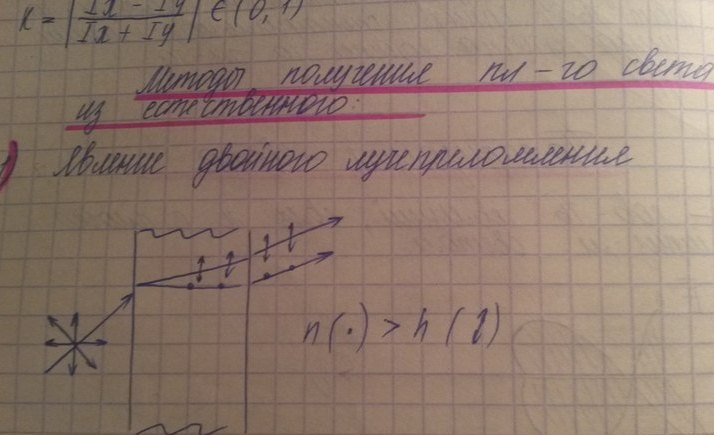 K = | Ix - Iy / Ix + Iy | ∈ (0, 1)
Методы получения пл-го света
из естественного:
1) Явление двойного лучепреломления
n (·) > n (↕)